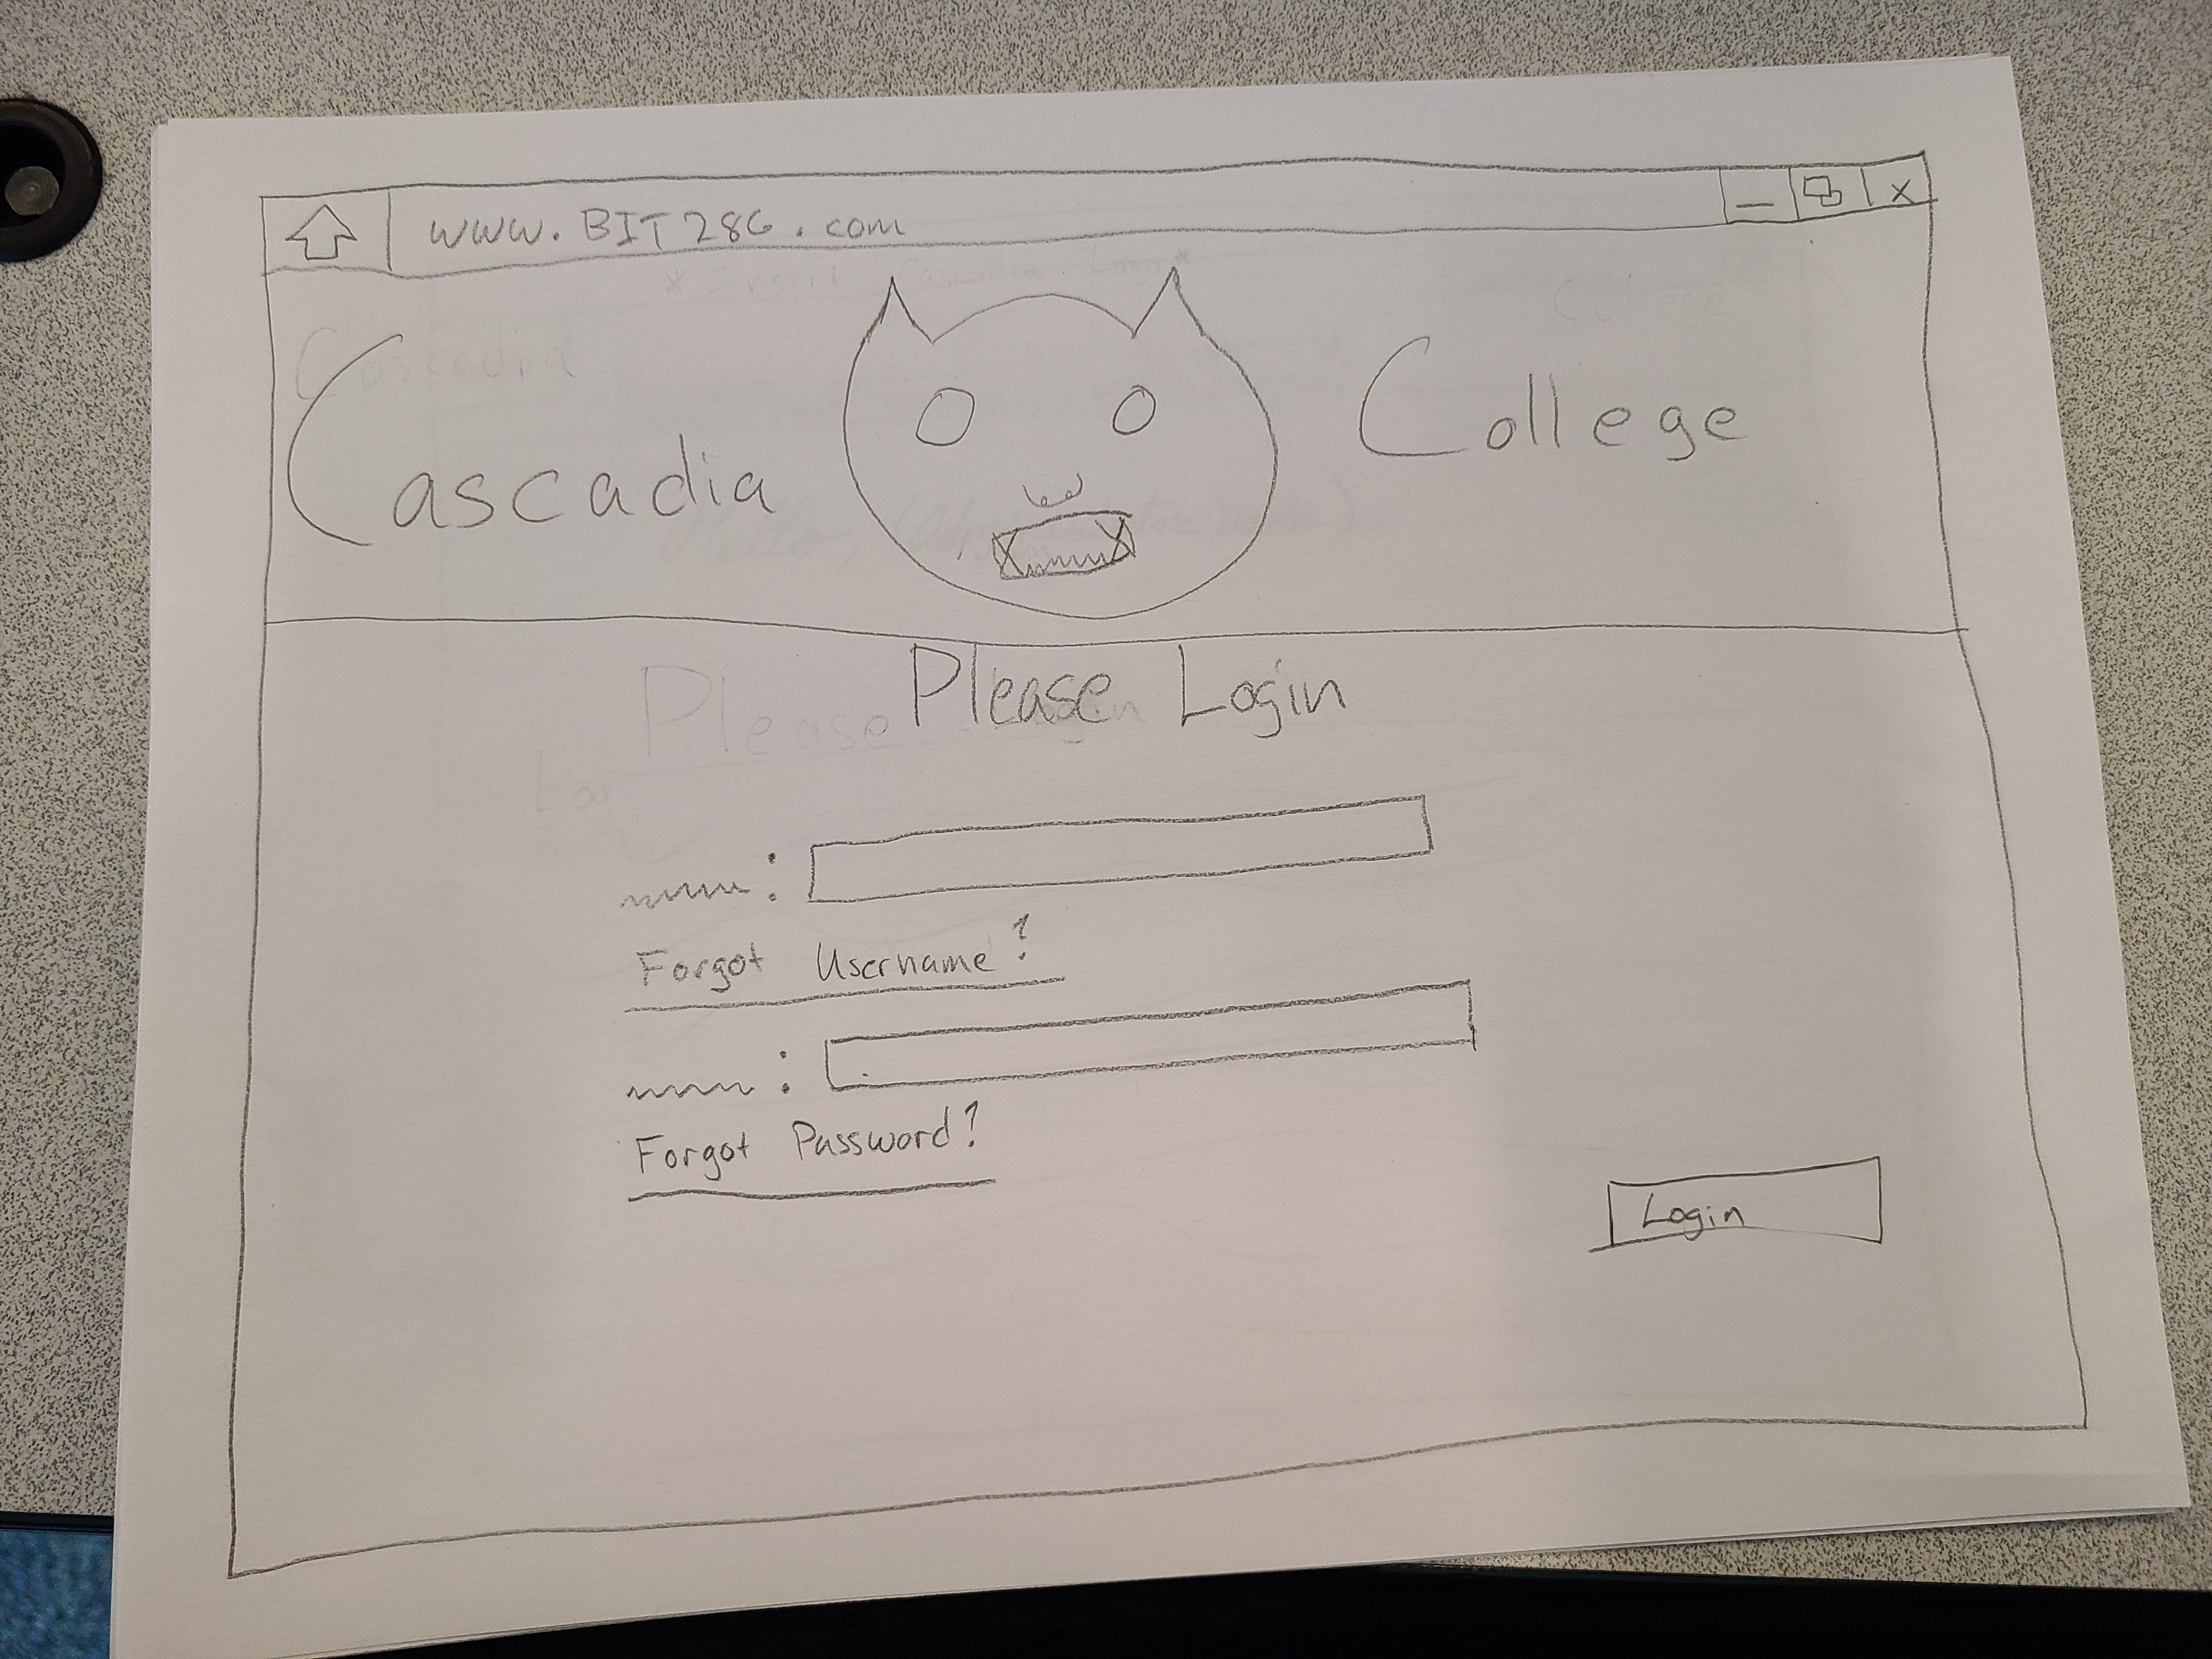 www.BIT286.com
Cascadia College
Please Login
Forgot Username?
Forgot Password?
Login